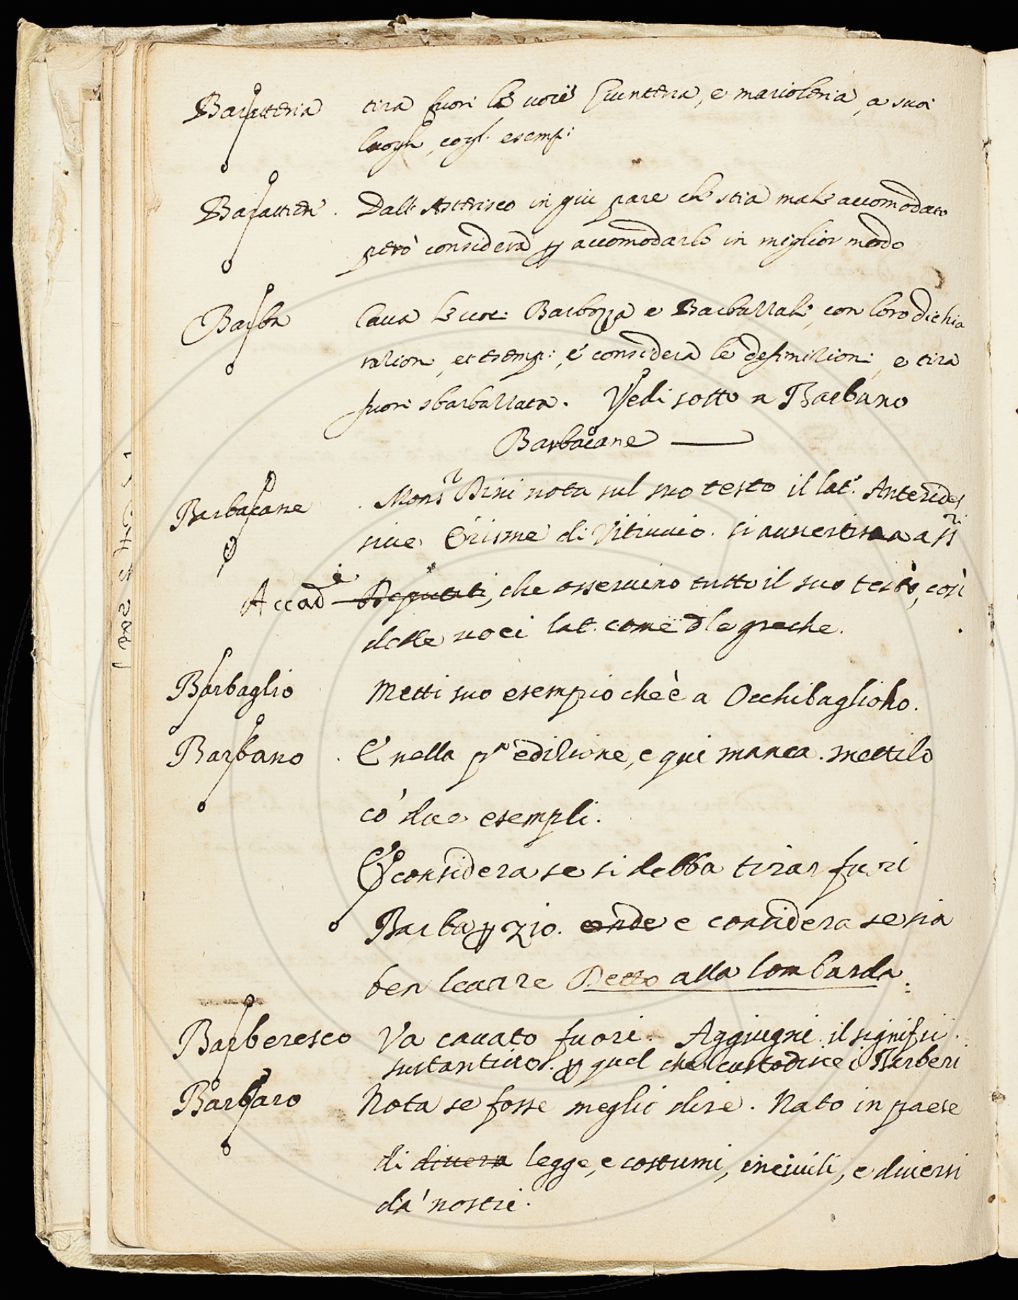 Baratteria tira fuori le voci Giunteria, e marioleria, a suoi
luoghi, cogl. esempi
Barattiere. Dall'Asterisco in giu pare che stia male accomodato
però considera p accomodarlo in miglior modo
Barba Cava le voci Barbozza e Barbassale, con loro dichia
ration, et esempi, e considera le definizioni, e tira
fuori sbarbazzata. Vedi sotto a Barbano
Barbacane
Barbacane. Mons.r Dini nota sul suo testo il lat. Anterides
sive Erisme di Vitruvio. si avvertisca a SS.ri
Accad.i Deputati, che osservino tutto il suo testo, così
delle voci lat. come d le greche.
Barbaglio Metti suo esempio che è a Occhibagliolo.
Barbano. E' nella p.a edizione, e qui manca. mettilo
cō due esempli.
E considera se si debba tirar fuori
Barba p zio. onde e considera se sia
ben levare Detto alla lombarda.
Barberesco Va cavato fuori. Aggiugni il signifi.
sustantivo. p quel che custodisce i Barberi
Barbaro Nota se fosse meglio dire. Nato in paese
di diversa legge, e costumi, incivili, e diversi
da' nostri.